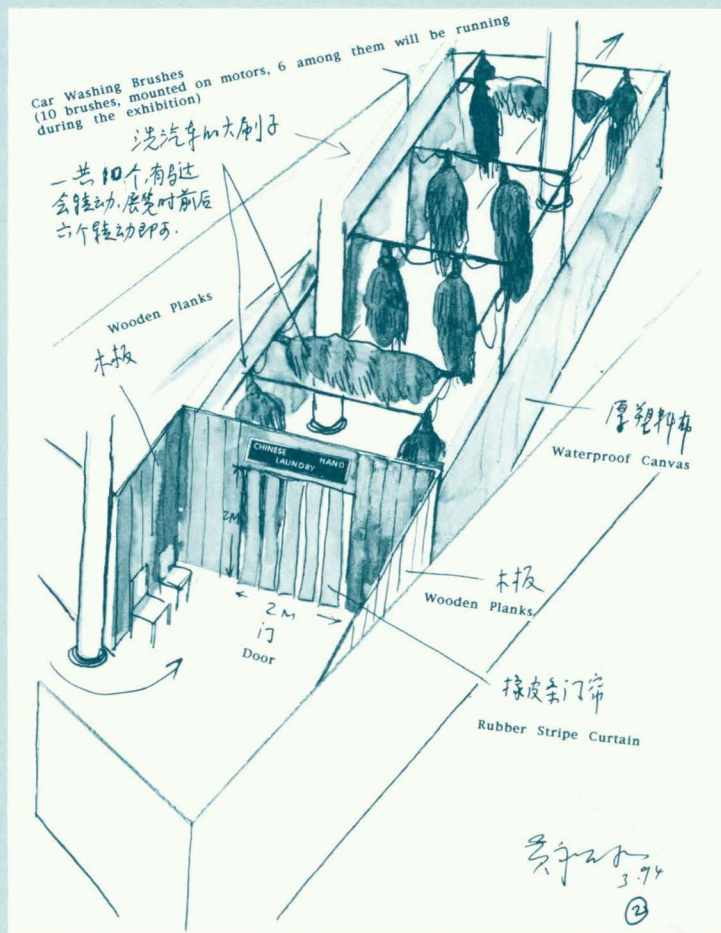 Car Washing Brushes
(10 brushes, mounted on motors, 6 among them will be running
during the exhibition)
洗汽车的大刷子
一共10个,有马达
会转动.展览时前后
六个转动即可.
Wooden Planks
木板
厚塑料布
Waterproof Canvas
CHINESE HAND
LAUNDRY
2M
木板
Wooden Planks
2M
门
Door
橡皮条门帘
Rubber Stripe Curtain
3.94
2